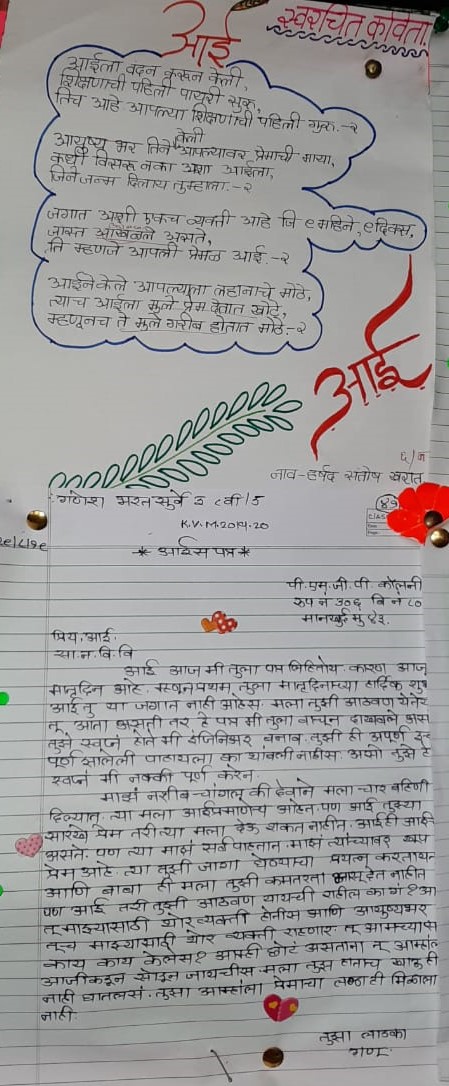 स्वरचित कविता
आई
आईला वंदन करून केली,
शिक्षणाची पहिली पायरी सुरू,
तिच आहे आपल्या शिक्षणाची पहिली गुरु.-२
आयुष्य भर तिने केली आपल्यावर प्रेमाची माया,
कधी विसरू नका अशा आईला,
जिने जन्म दिलाय तुम्हाला.-२
जगात अशी एकच व्यक्ती आहे जि ९ महिने, ९ दिवस,
जास्त ओळखले असते,
ति म्हणजे आपली प्रेमळ आई.-२
आईने केले आपल्याला लहानाचे मोठे,
त्याच आईला मुले प्रेम देतात खोटे,
म्हणूनच ते मुले गरीब होतात मोठे.-२
आई
६/अ
नाव-हर्षद संतोष खरात
गणेश भरत सुर्वे इ ८वी/5
K.V.M.2019.20
* आईस पत्र *
पी.एम.जी.पी. कोलनी
रुम नं ३०६ बि नं ८०
मानखुर्द मु ४३.
प्रिय, आई.
सा.न.वि.वि
आई आज मी तुला पत्र लिहितोय. कारण आज
मातृदिन आहे. म्हणून प्रथम तुला मातृदिनाच्या हार्दिक शुभ
आई तु या जगात नाही आहेस. मला तुझी आठवण येते
तू आता असती तर हे पत्र मी तुला वाचून दाखवले अस
तुझे स्वप्न होते मी इंजिनिअर बनाव. तुझी ही अपूर्ण इच्
पूर्ण झालेली पाहायला का थांबली नाहीस. असो तुझे हे
स्वप्न मी नक्की पूर्ण करेन.
माझं नशीब चांगल की देवाने मला चार बहिणी
दिल्यात. त्या मला आईप्रमाणेच आहेत. पण आई तुझ्या
सारखे प्रेम तरी त्या मला देऊ शकत नाहीत. आई ही आई
असते. पण त्या माझं सर्व पाहतात. माझं त्यांच्यावर खूप
प्रेम आहे. त्या तुझी जागा घेण्याचा प्रयत्न करतायत
आणि बाबा ही मला तुझी कमतरता भासू देत नाहीत
पण आई तरी तुझी आठवण यायची राहील का गं? आ
तू माझ्यासाठी थोर व्यक्ती होतीस आणि आयुष्यभर
तूच माझ्यासाठी थोर व्यक्ती राहणार. तू आमच्यास
काय काय केलेस? आम्ही छोटे असताना तू आम्हांल
आजीकडून सोडून जायचीस मला तुझ हातांच खाऊ ही
नाही घातलसं. तुझा आम्हांला प्रेमाचा लळा ही मिळाला
नाही.
तुझा लाडका
गणू.